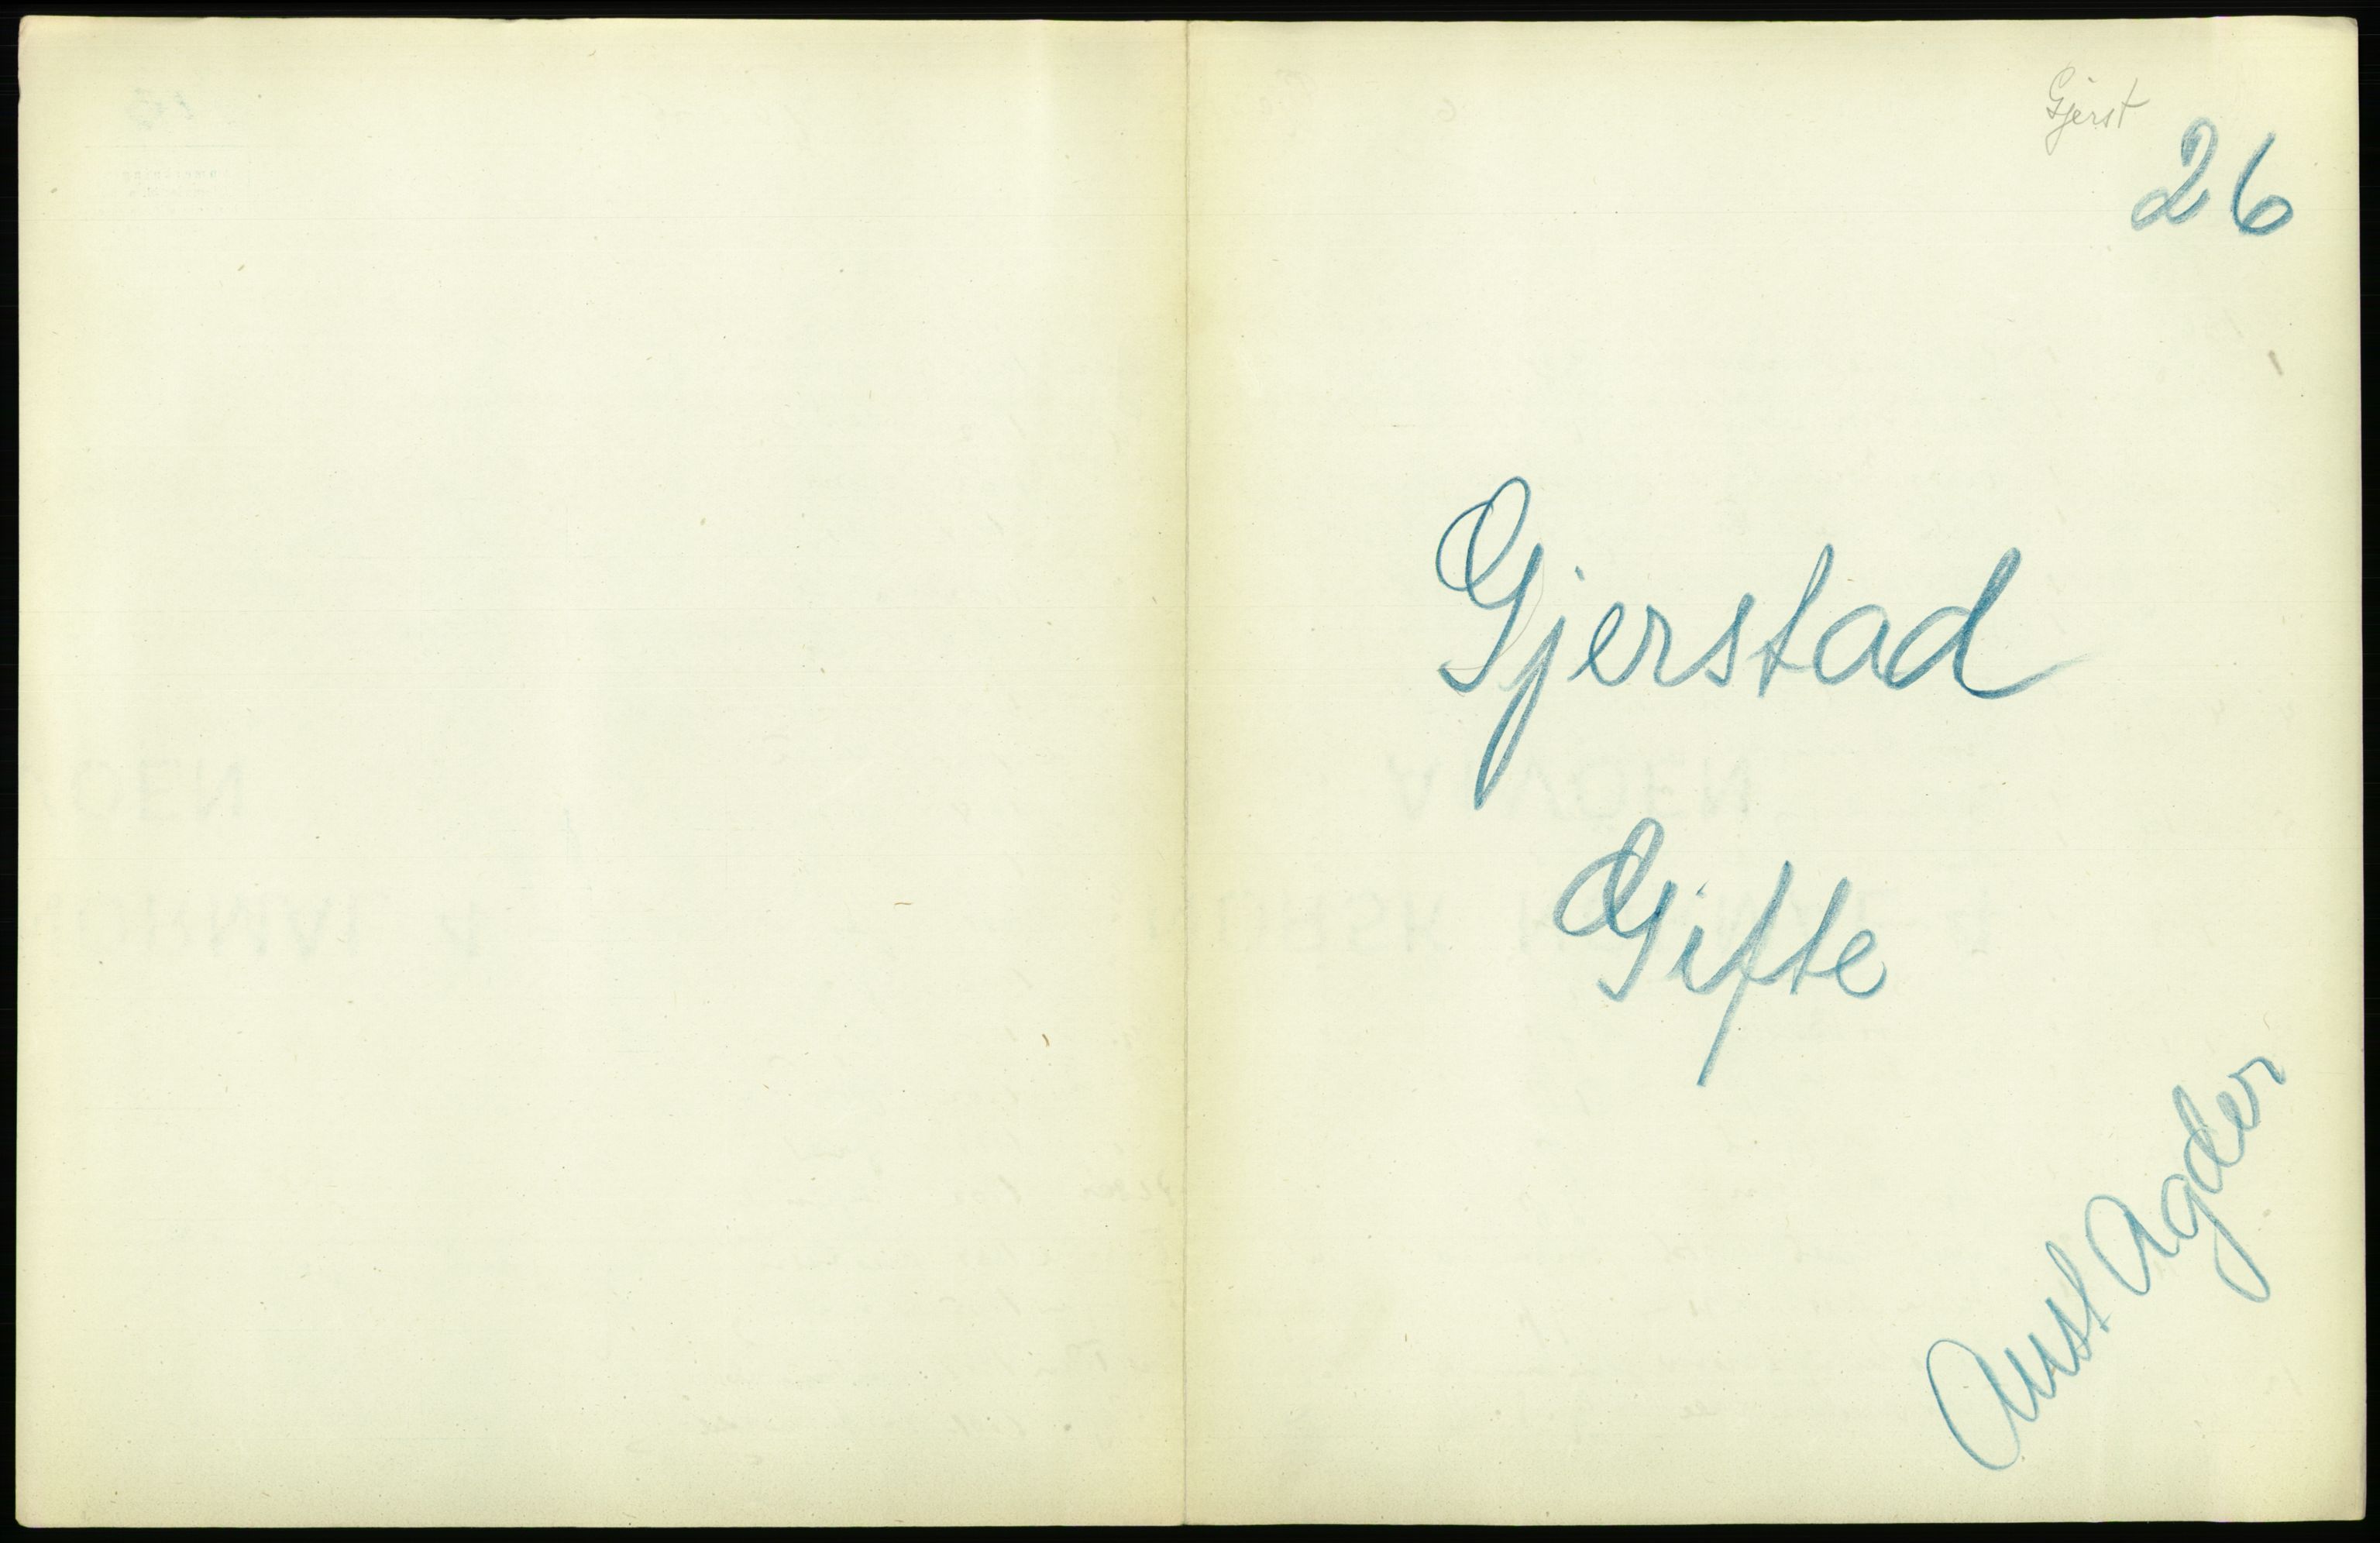 Gjerst
26
Gjerstad
Gifte
Aust Agder